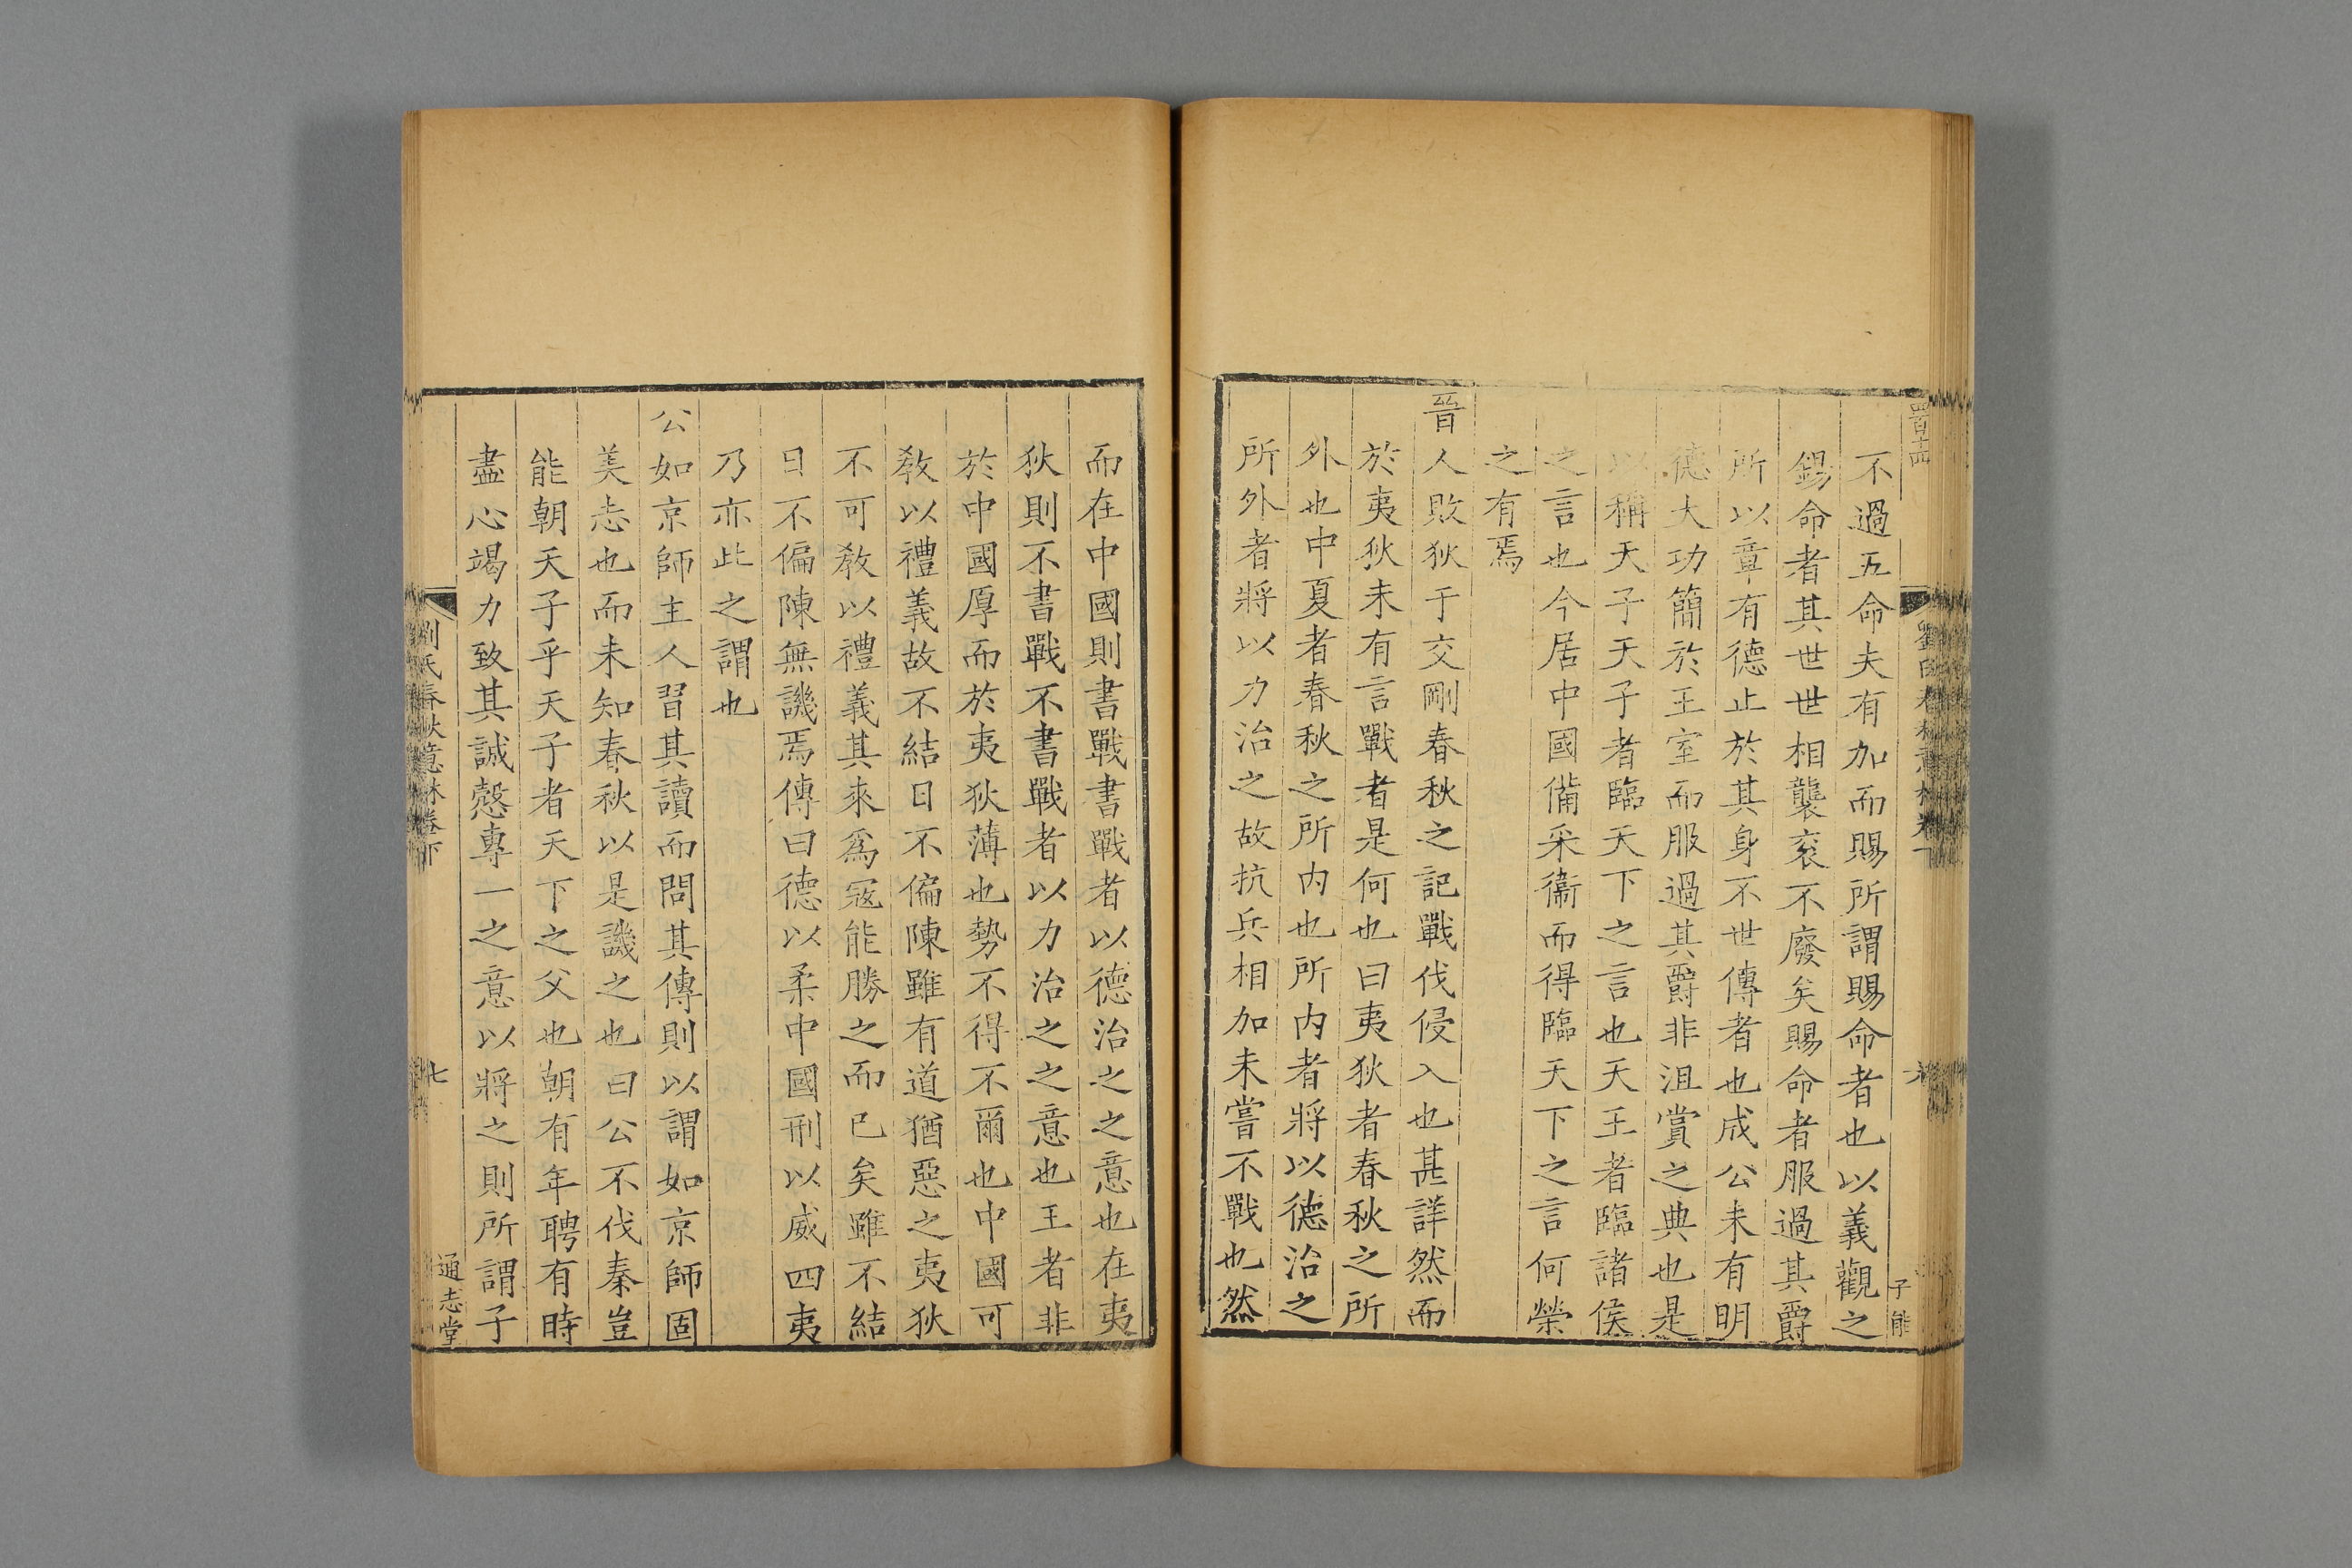 不過五命夫有加而賜所謂賜命者也以義觀之
錫命者其世世相襲衮不廢矣賜命者服過其爵
所以章有德止於其身不世傳者也成公未有明
德大功簡於王室而服過其爵非沮賞之典也是
以稱天子天子者臨天下之言也天王者臨諸侯
之言也今居中國備采衞而得臨天下之言何榮
之有焉
晉人敗狄于交剛春秋之記戰伐侵入也甚詳然而
於夷狄未有言戰者是何也曰夷狄者春秋之所
外也中夏者春秋之所内也所内者將以德治之
所外者將以力治之故抗兵相加未嘗不戰也然
而在中國則書戰書戰者以德治之之意也在夷
狄則不書戰不書戰者以力治之之意也王者非
於中國厚而於夷狄薄也勢不得不爾也中國可
教以禮義故不結日不偏陳雖有道猶惡之夷狄
不可教以禮義其來爲寇能勝之而已矣雖不結
日不偏陳無譏焉傳曰德以柔中國刑以威四夷
乃亦此之謂也
公如京師主人習其讀而問其傳則以謂如京師固
美志也而未知春秋以是譏之也曰公不伐秦豈
能朝天子乎天子者天下之父也朝有年聘有時
盡心竭力致其誠慤專一之意以將之則所謂子
劉氏春秋意林卷下
七
通志堂